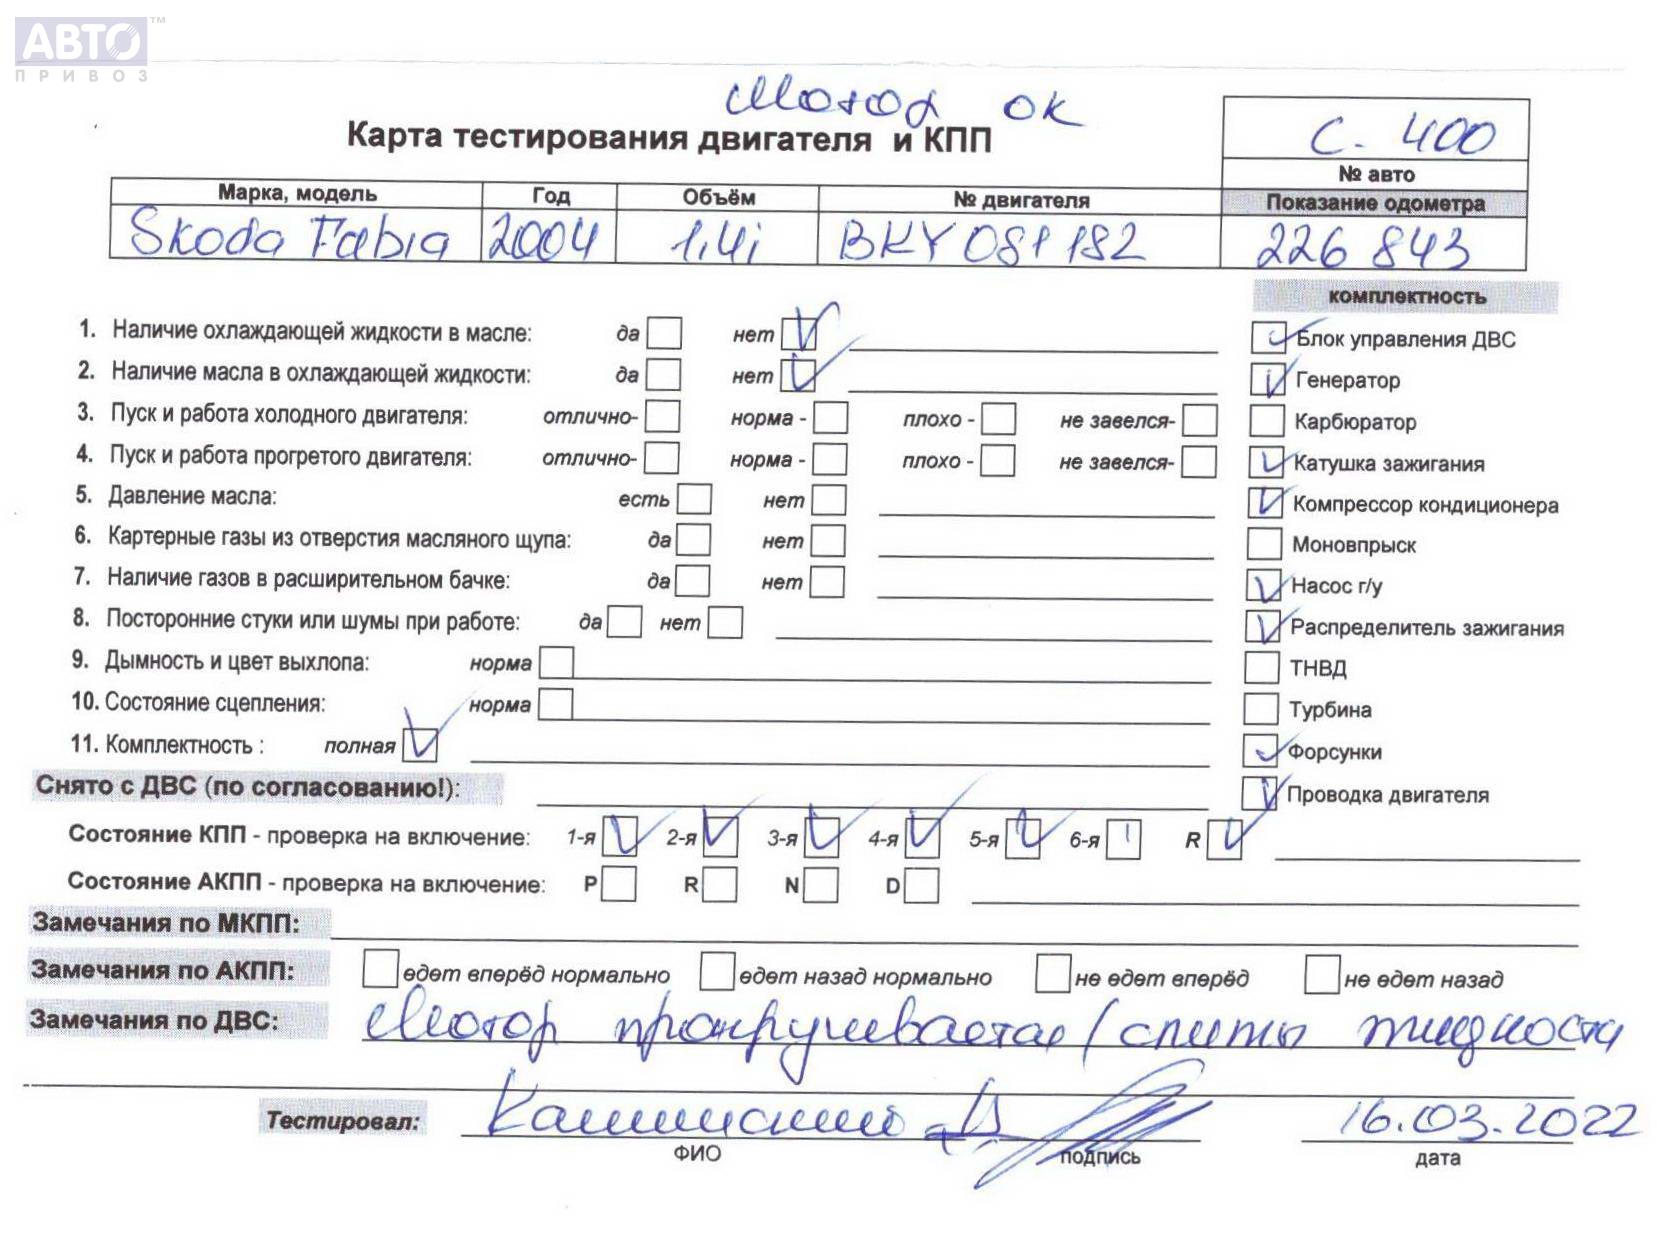 АВТО™
ПРИВОЗ
Мотор ок
Карта тестирования двигателя и КПП
С. 400
№ авто
Марка, модель Год Объём № двигателя Показание одометра
Skoda Fabia 2004 1,4i BKY 081 182 226 843
комплектность
1. Наличие охлаждающей жидкости в масле: да нет
Блок управления ДВС
2. Наличие масла в охлаждающей жидкости: да нет
Генератор
3. Пуск и работа холодного двигателя: отлично- норма - плохо - не завелся-
Карбюратор
4. Пуск и работа прогретого двигателя: отлично- норма - плохо - не завелся-
Катушка зажигания
5. Давление масла: есть нет
Компрессор кондиционера
6. Картерные газы из отверстия масляного щупа: да нет
Моновпрыск
7. Наличие газов в расширительном бачке: да нет
Насос г/у
8. Посторонние стуки или шумы при работе: да нет
Распределитель зажигания
9. Дымность и цвет выхлопа: норма
ТНВД
10. Состояние сцепления: норма
Турбина
11. Комплектность : полная
Форсунки
Снято с ДВС (по согласованию!):
Проводка двигателя
Состояние КПП - проверка на включение: 1-я 2-я 3-я 4-я 5-я 6-я R
Состояние АКПП - проверка на включение: P R N D
Замечания по МКПП:
Замечания по АКПП: едет вперёд нормально едет назад нормально не едет вперёд не едет назад
Замечания по ДВС: Мотор прокручивается / слиты жидкости
Тестировал: 16.03.2022
ФИО подпись дата